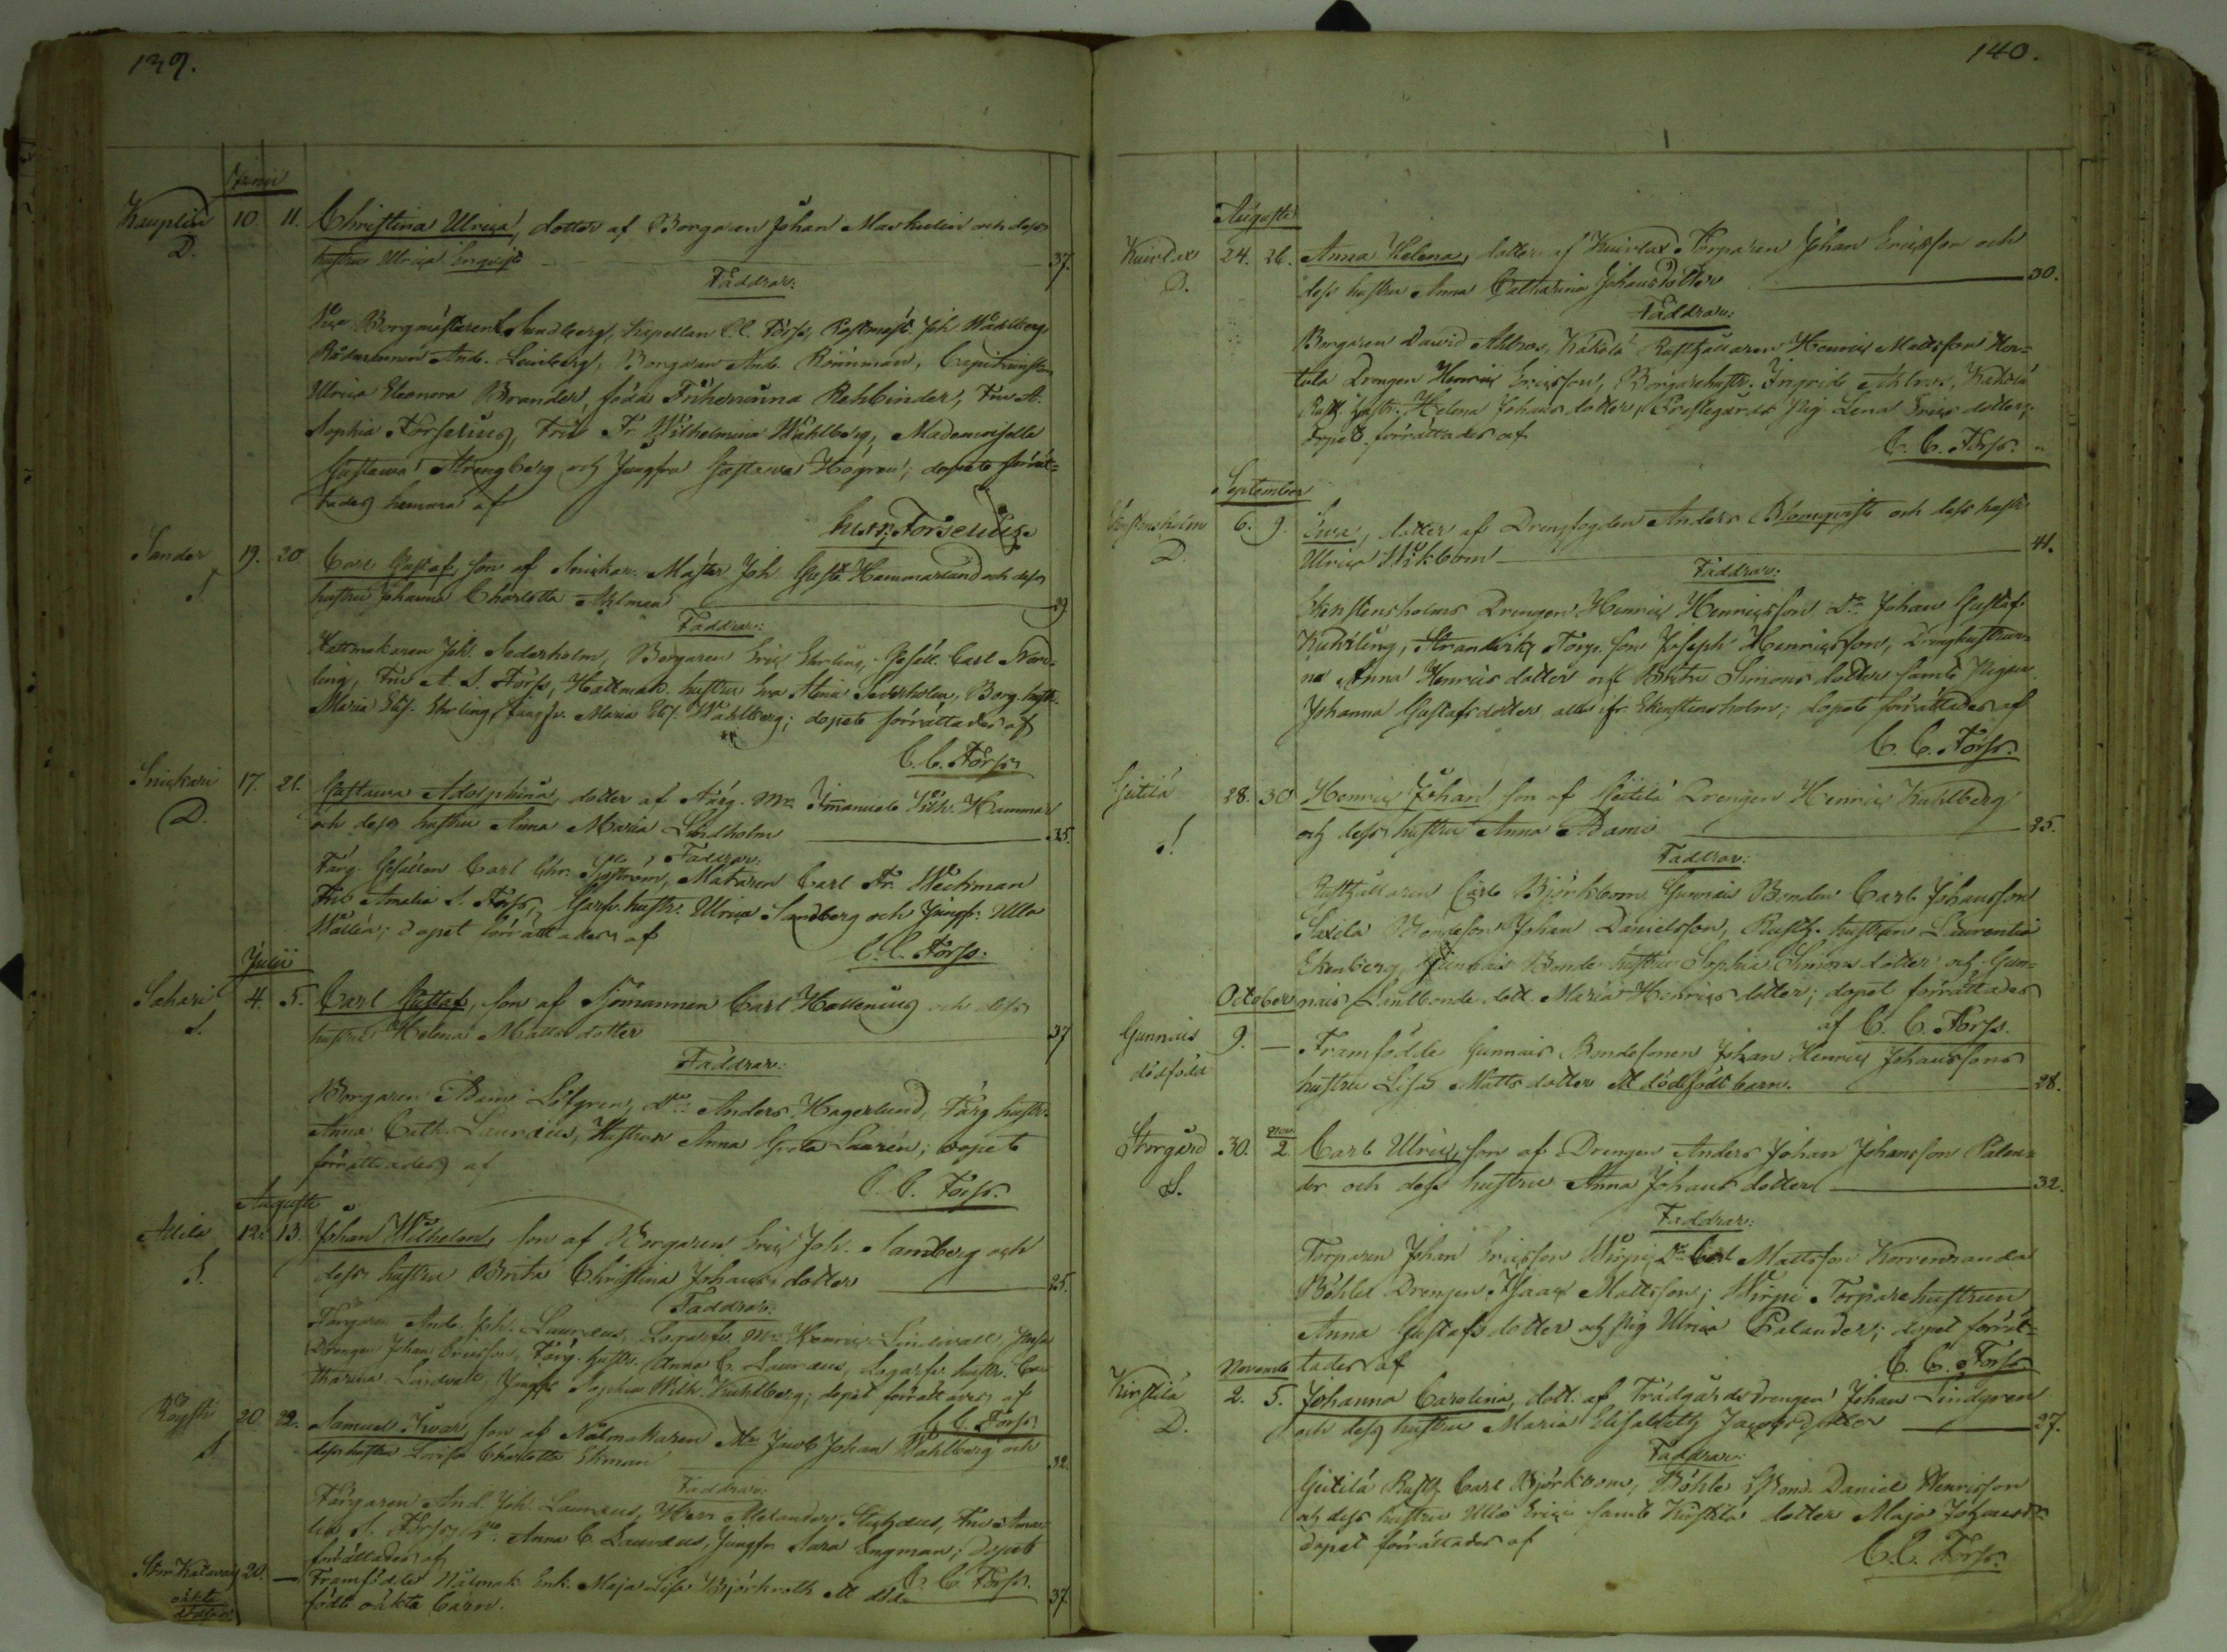 139.
Junii
Kauplia 10. 11. Christina Ulrica, dotter af Borgaren Johan Markulin och dess
D. hustru Ulrica Enqvist 37.
Faddrar:
Vice Borgmästaren Sundberg, Kapellan C. C. Förss, Postmäst. Joh. Wahlberg
Rådmannen And. Leinberg, Borgaren And. Rönnman,
Ulrica Eleonora Brander, född Friherrinna Rehbinder, Fru A.
Sophia Forselius, Fru Fr. Wilhelmina Wahlberg, Mademoiselle
Gustava Strengberg och Jungfru Gustava Högren; dopet förrät-
tades hemma af
Forselius.
Sander 19. 20 Carl Gustaf, son af Snickar Mäster Joh. Gust. Hammarlund och dess
S. hustru Johanna Charlotta Ahlman 29
Faddrar:
Hattmakaren Joh. Sederholm, Borgaren Eric Ehrling, Gesäll. Carl Nord-
ling, Fru A. S. Förss, Hattmak. hustru Eva Sederholm, Borg. hustr.
Maria Elis. Ehrling, Jungfr. Maria Elis. Wahlberg; dopet förrättades af
C. C. Förss
Snickari 17. 21. Gustava Adolphina, dotter af Färg. Mr. Imanuel Wilh. Hammar
D. och dess hustru Anna Maria Lindholm 25.
Faddrar:
Färg. Gesällen Carl Chr. Sjöström, Målaren Carl Fr. Weckman
Fru Amalia S. Förss, Garfv. hustr. Ulrica Sandberg och Jungfr. Ulla
Wallin; dopet förrättades af
C. C. Förss.
Julii
Sahari 4. 5. Carl Gustaf, son af Sjömannen Carl Hallenius och dess
S. hustru Helena Matts dotter 37
Faddrar:
Borgaren Adam Löfgren, Do. Anders Hagerlund, Färg. hustr.
Anna Cath. Lauraeus, Hustrun Anna Greta Laurén; dopet
förrättades af
C. C. Förss.
Augusti
Alila 12. 13. Johan Wilhelm, son af Borgaren Eric Joh. Sandberg och
S. dess hustru Brita Christina Johans dotter 25.
Faddrar:
Färgaren And. Joh. Lauraeus, Logarfv. Mr. Henric Lindvall,
Drengen Johan Ericsson, Färg. hustr. Anna C. Lauraeus, Logarfv. hustr. Ca-
tharina Lindvall, Jungfr Sophia Wilh. Kuhlberg; dopet förrättades af
C. C. Förss
Röysti 20 22. Samuel Ivar, son af Nålmakaren Mr Jacob Johan Wahlberg och
S dess hustru Lovisa Charlotta Ekman 32.
Faddrar:
Färgaren And. Joh. Lauraeus, Herr Alexander, Fru Ama-
lia S. Förss, Do. Anna C. Lauraeus, Jungfr. Sara Engman; dopet
förrättades af
C. C. Förss.
20. — Framfödde Nålmak. Enk. Maja Lisa Björkroth ett död-
oäkta födt oäkta barn. 37.
140.
Augusti
Kuivlax 24. 26. Anna Helena, dotter af Kuivlax Torparen Johan Ericsson och
D. dess hustru Anna Catharina Johansdotter 30.
Faddrar:
Borgaren David Ahlros, Kakola Rusthållaren Henric Mattsson Hen-
tula Drengen Henric Ericsson, Borgarehustr. Ingrid Ahlros, Kakola
Rusth. hustr. Helena Johans dotter, Prestegårds Pig. Lena Erics dotter;
dopet förrättades af
C. C. Förss.
September
Ekenstensholm 6. 9. Eva, dotter af Drengfogden Anders Blomqvist och dess hustr
D. Ulrica Wikbom 41.
Faddrar:
Ekenstensholms Drengen Henric Henricsson Do. Johan Gustaf
Kuhrling, Strandvik Torp. son Joseph Henricsson, Drenghustrur-
na Anna Henrics dotter och Brita Simons dotter samt Pigan
Johanna Gustafs dotter alla ifr. Ekenstensholm; dopet förrättades af
C. C. Förss.
Geitilä 28. 30 Henric Johan, son af Geitilä Drengen Henric Kuhlberg
S. och dess hustru Anna Adami 25.
Faddrar:
Rusthållaren Carl Björkbom, Gunnais Bonden Carl Johansson
Saxila Bondeson Johan Danielsson, Rusth. hustrun Laurentia
Ekenberg, Gunnais Bonde hustru Sophia Simons dotter och Gun-
October nais Landbonde dott. Maria Henrics dotter; dopet förrättades
af C. C. Förss.
Gunnais 9. — Framfödde Gunnais Bondesonen Johan Henric Johanssons
dödfödd hustru Lisa Matts dotter ett dödfödt barn. 28.
Storgård 30. nov. 2 Carl Ulric, son af Drengen Anders Johan Johansson Palan-
S. der och dess hustru Anna Johans dotter 32.
Faddrar:
Torparen Johan Ericsson Wirpi, Do. Carl Mattsson Korvenranda
Böhle Drengen Isaac Mattsson; Wirpi Torparehustrun
Anna Gustafs dotter och Pig Ulrica Palander; dopet förrät-
Novemb tades af C. C. Förss
Kirstilä 2. 5. Johanna Carolina, dott. af Trädgårds drengen Johan Lindgren
D. och dess hustru Maria Elisabeth Jacobs dotter 27.
Faddrar:
Geitilä Rusth. Carl Björkbom, Böhle Bond. Daniel Henricsson
och dess hustru Ulla Erics samt Kirstilä dotter Maja Johansdr.
dopet förrättades af
C. C. Förss.